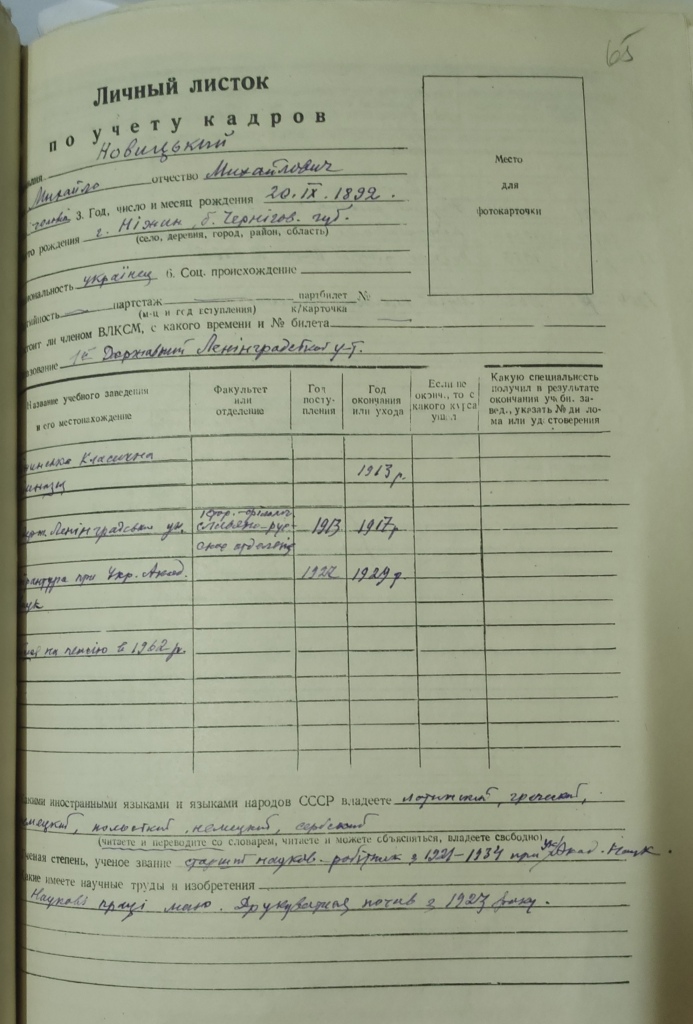 65
Личный листок
по учету кадров
Новицький
Михайло отчество Михайлович
3. Год, число и месяц рождения 20.IX.1892.
рождения г. Ніжин, б. Чернігов. губ.
(село, деревня, город, район, область)
українец 6. Соц. происхождение
партстаж партбилет №
(м-ц и год вступления) к/карточка
ли членом ВЛКСМ, с какого времени и № билета
Державний Ленінградский у-т.
Название учебного заведения и его местонахождение
Факультет или отделение
Год поступления
Год окончания или ухода
Если не окончил, то с какого курса ушел
Какую специальность получил в результате окончания учебн. завед., указать № диплома или удостоверения
Класична
1913 р.
Ленінградський ун. істор.-філолог. славяно-русское отделение 1913 1917 р.
при Укр. Акад. 1922 1929 р.
на пенсію в 1962 р.
иностранными языками и языками народов СССР владеете латинский, греческий,
польский, немецкий, сербский
(читаете и переводите со словарем, читаете и можете объясняться, владеете свободно)
степень, ученое звание старший науков. робітник з 1921–1934 при Укр. Акад. Наук.
имеете научные труды и изобретения
Наукові праці маю. Друкуватися почав з 1923 року.
Место
для
фотокарточки